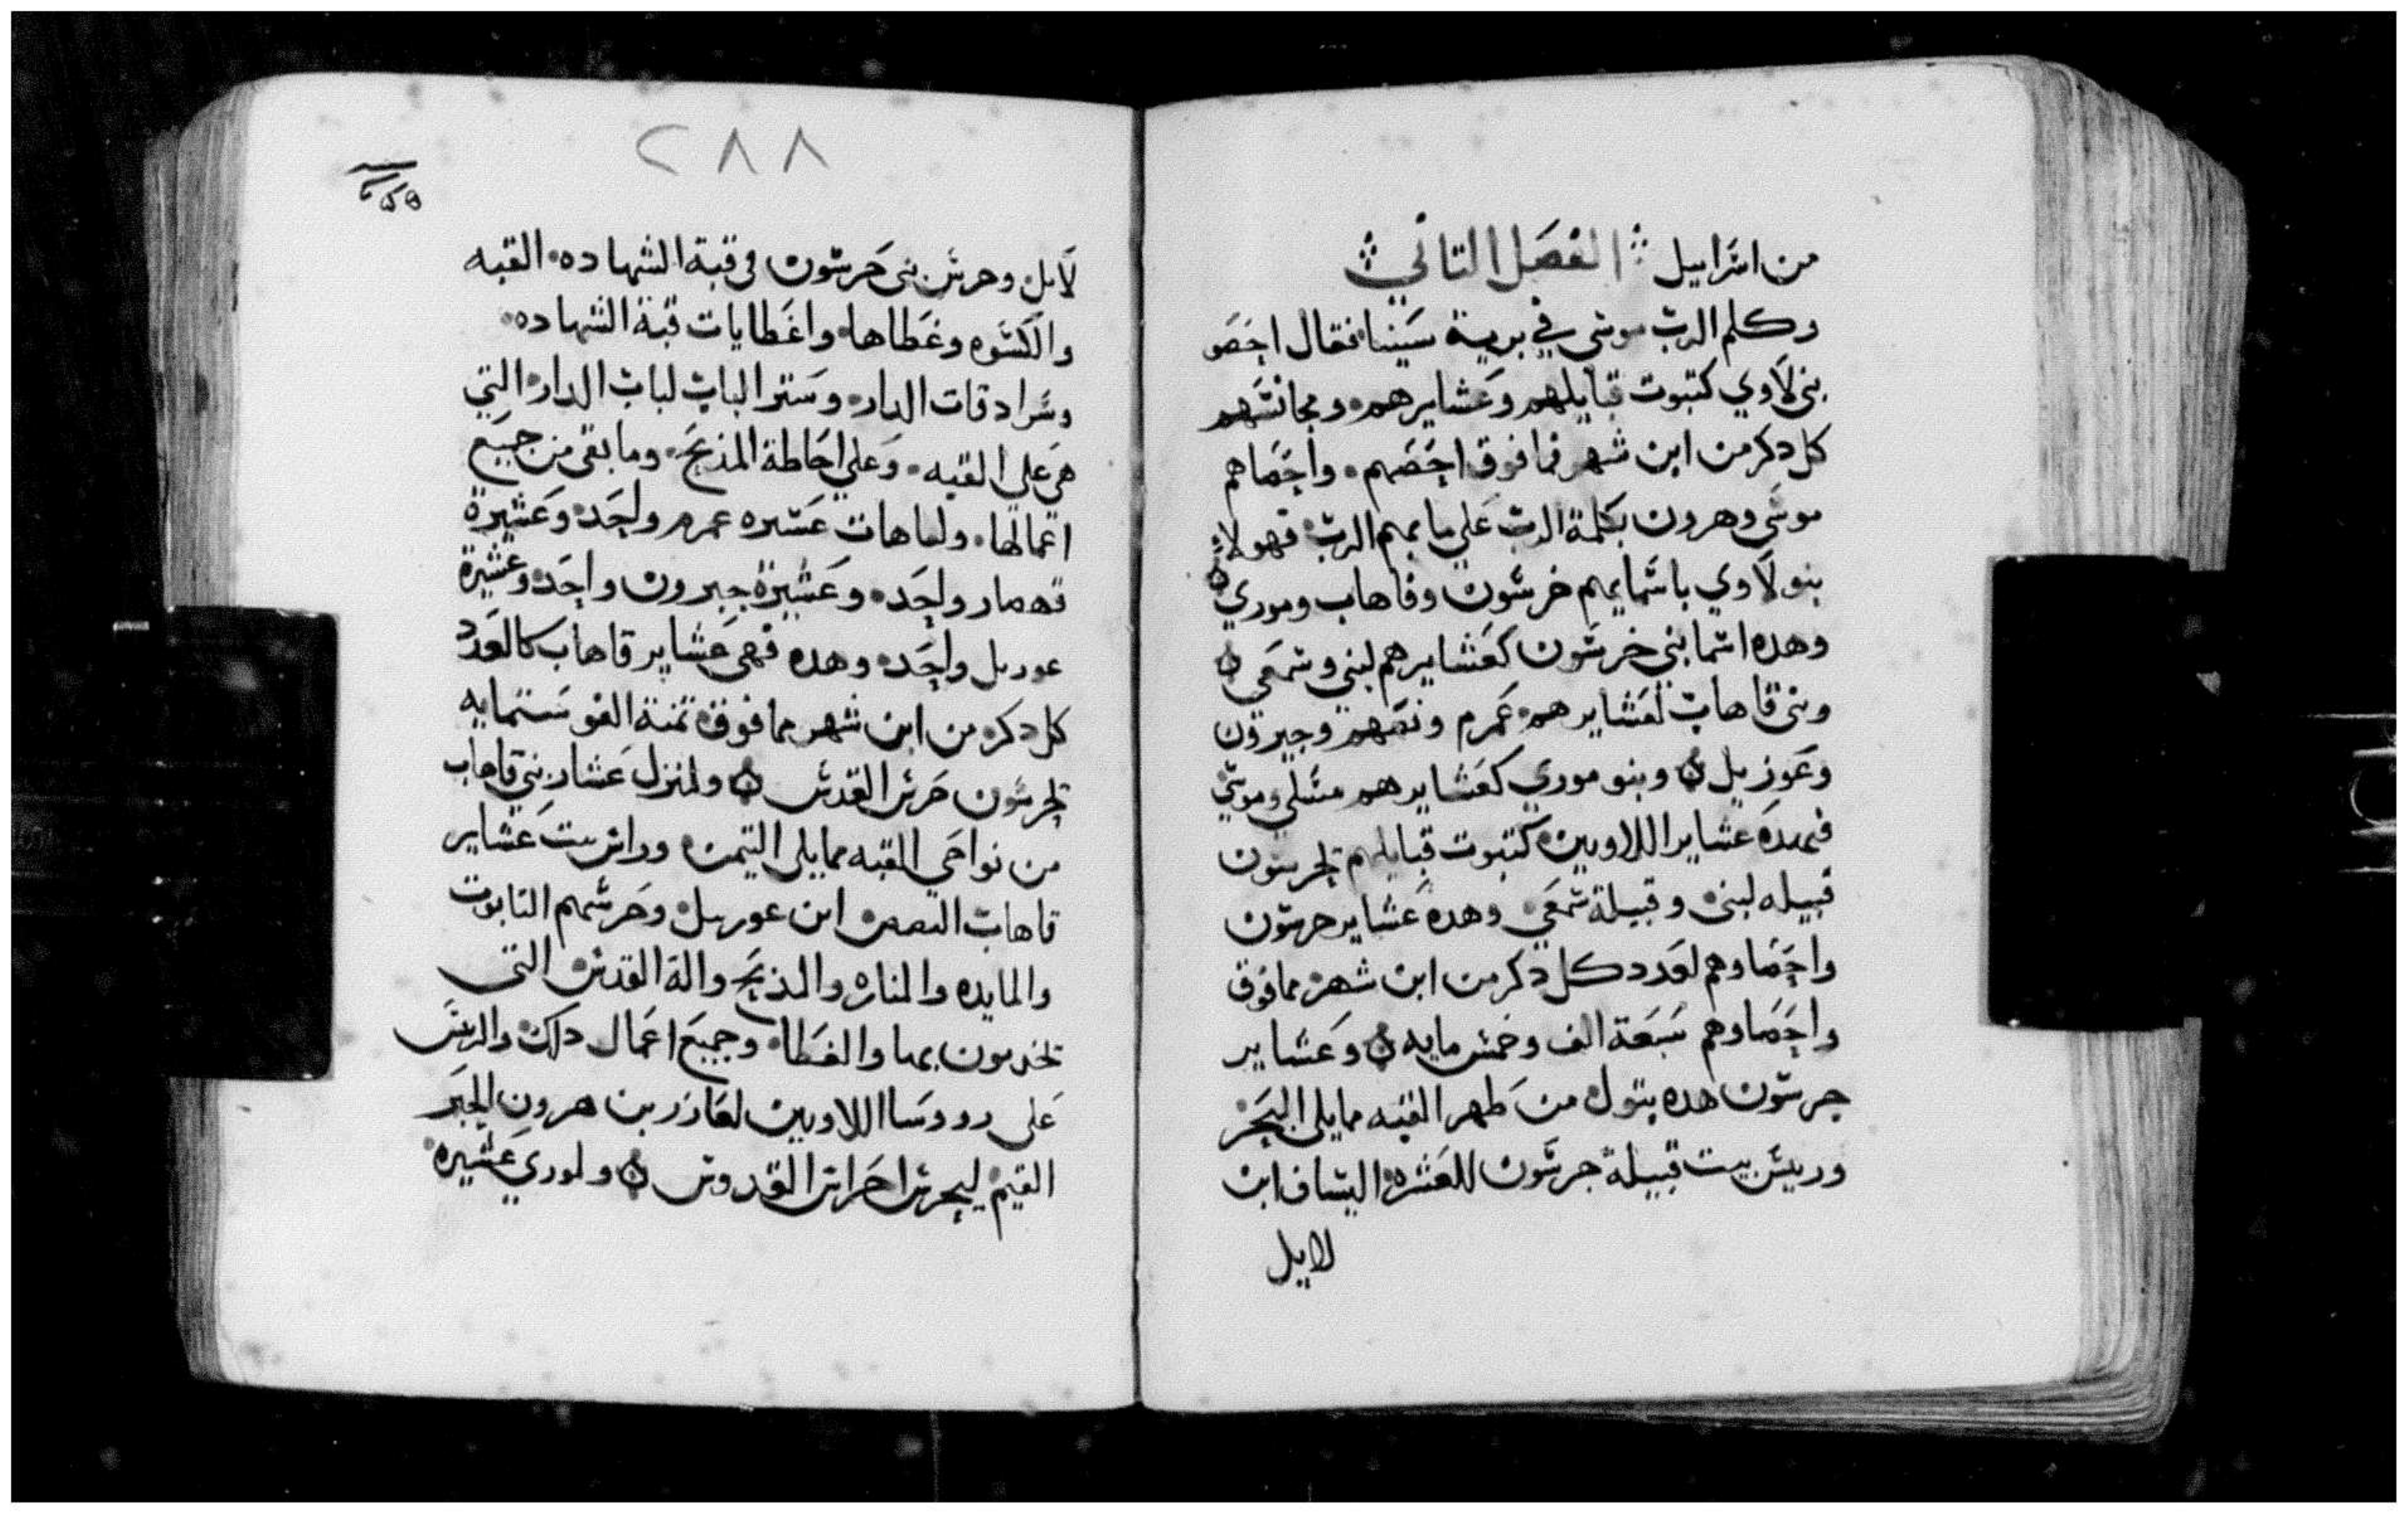 من اسرابيل ⁘ الفصل التاني ⁘
وكلم الرب موسى في برية سينا فقال احصو
بني لاوي كتبوت قبايلهم وعشايرهم ومجانسهم
كل دكر من ابن شهر فما فوق احصهم واحصاهم
موسى وهرون بكلمة الرب علي ما بهم الرب فهولاء
بنو لاوي باسمايهم خرسون وقاهاب وموري
وهده اسما بني خرسون كعشايرهم لبني وسمعي
وبني قاهاب لعشايرهم عمرم ونصهم وجبرون
وعوزيل وبنو موري كعشايرهم مسلي وموسي
فهده عشاير اللاويين كتبوت قبايلهم لجرسون
قبيله لبني وقبيلة سمعي وهده عشاير حرسون
واحصاوهم لعدد كل دكر من ابن شهر مما فوق
واحصاوهم سبعة الف وخمس مايه وعشاير
جرسون هده بتول من طهر القبه مما يلي البحر
وريس بيت قبيلة جرسون للعشره اليساف ابن
لايل
٢٨٨
لايل وحرس بني حرسون في قبة الشهاده القبه
والكسوه وغطاها واغطايات قبة الشهاده
وسرادقات الدار وستر الباب لباب الدار التي
هي علي القبه وعلي احاطة المذبح وما بقي من جميع
اعمالها ولقاهات عشيره عمرم واحده وعشيرة
نهصار واحده وعشيرة جبرون واحده وعشيرة
عوربل واحده وهده فهي عشاير قاهاب كالعدد
كل دكر من ابن شهر مما فوق تمنة الف وستمايه
لجرسون حرس القدس ولمنزل عشار بني قاهاب
من نواحي القبه مما يلي التيمن وراس بيت عشاير
قاهاب ابن عوريل وحرسهم التابوت
والمايده والمناره والمذبح والة القدس التي
تخدمون بها والغطا وجميع اعمال دلك والريس
على رووسا اللاويين لعازر بن هرون الحبر
القيم ليحرس احراس القدوس ولموري عشيره